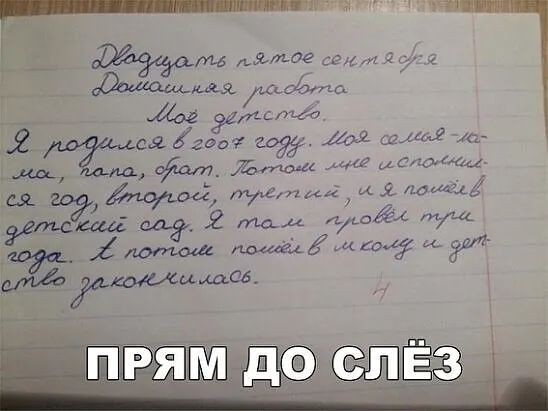 Двадцать пятое сентября
Домашняя работа
Моё детство.
Я родился в 2007 году. Моя семья – ма-
ма, папа, брат. Потом мне исполнил-
ся год, второй, третий, и я пошёл в
детский сад. Я там провёл три
года. А потом пошёл в школу и дет-
ство закончилась.
4
ПРЯМ ДО СЛЁЗ